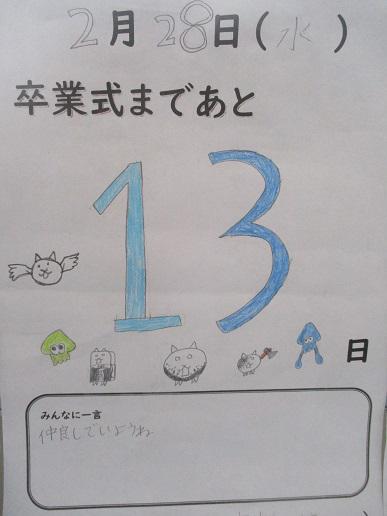 2月28日(水)
卒業式まであと
13
日
みんなに一言
仲良しでいようね